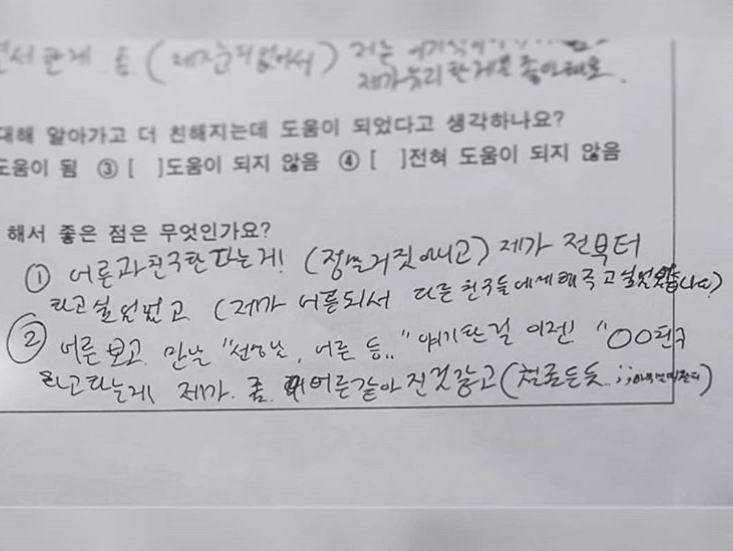 면서 한게 좀 (
제가
대해 알아가고 더 친해지는데 도움이 되었다고 생각하나요?
도움이 됨 ③ [ ]도움이 되지 않음 ④ [ ]전혀 도움이 되지 않음
해서 좋은 점은 무엇인가요?
① 어른과 친구한다는게! (정말 거짓 아니고) 제가 전부터
하고 싶었었고 (제가 어른되서 다른 친구들에게 해주고 싶었었습니다)
② 어른보고 만날 "선생님, 어른 등.." 얘기한걸 이젠 "○○친구
라고하는게 제가 좀 어른같아 진것같고 (